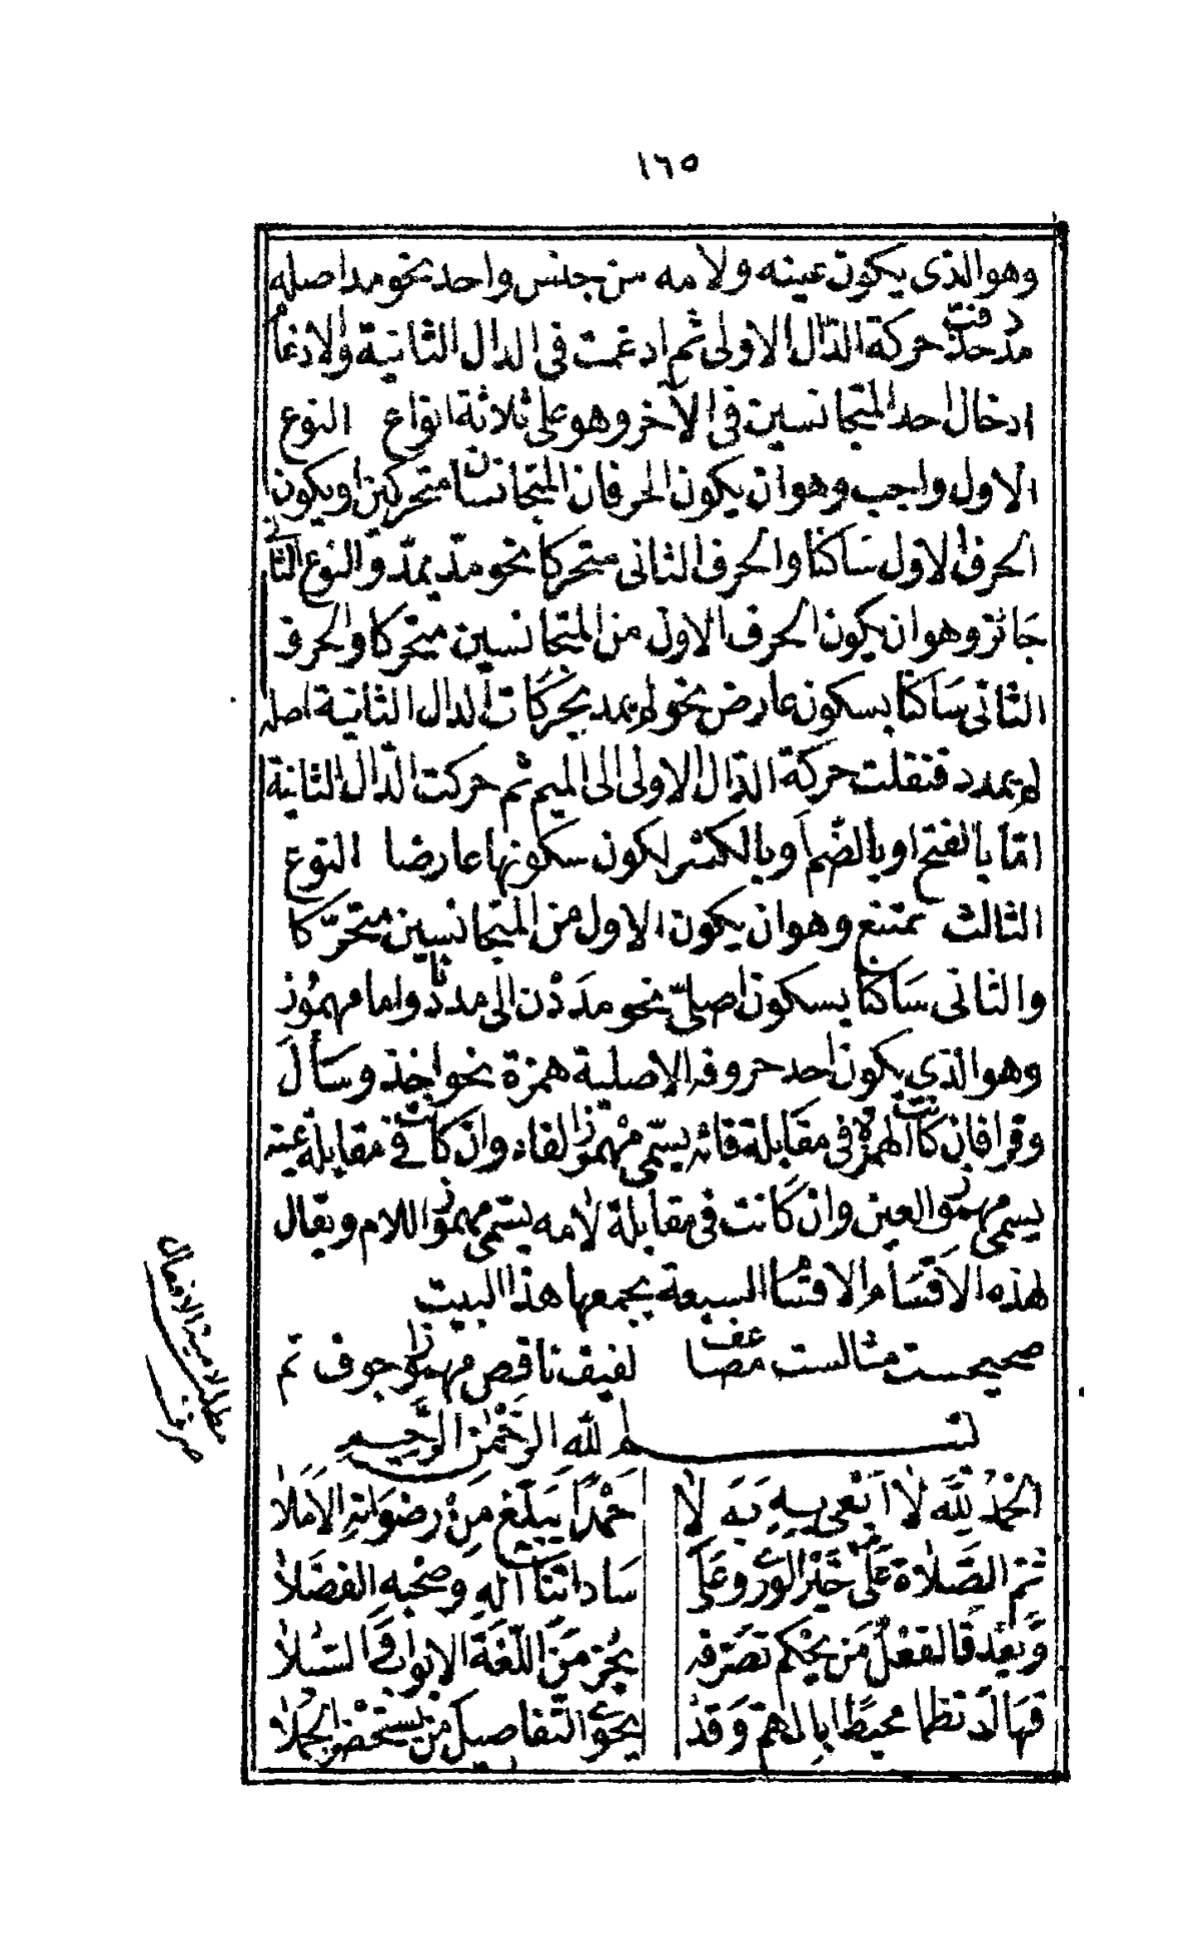 ١٦٥
وهو الذى يكون عينه ولامه من جنس واحد نحو مد اصله
مدد فحذفت حركة الدّال الاولى ثم ادغمت فى الدال الثانية والادغام
ادخال احد المتجانسين فى الآخر وهو على ثلاثة انواع النوع
الاول واجب وهو ان يكون الحرفان المتجانسان متحركين او يكون
الحرف الاول ساكنا والحرف الثانى متحركا نحو مدّ يمدّ والنوع الثانى
جائز وهو ان يكون الحرف الاول من المتجانسين متحركا والحرف
الثانى ساكنا بسكون عارض نحو لم يمد بحركات الدال الثانية اصله
لم يمدد فنقلت حركة الدّال الاولى الى الميم ثم حركت الدّال الثانية
امّا بالفتح او بالضّم او بالكسر لكون سكونها عارضا النوع
الثالث ممتنع وهو ان يكون الاول من المتجانسين متحرّكا
والثانى ساكنا بسكون اصلىّ نحو مَدَدْن الى مددنا واما مهموز
وهو الذي يكون احد حروفه الاصلية همزة نحو اخذ وسَأَلَ
وقرا فان كانت الهمزة فى مقابلة فائه يسّمى مهموز الفاء وان كانت فى مقابلة عينه
يسمى مهموز العين وان كانت فى مقابلة لامه يسمى مهموز اللام ويقال
لهذه الاقسام الاقسام السبعة يجمعها هذا البيت
صحيحست مثالست مضاعف لفيف ناقص مهموز اجوف تم
بسم لله الرّحْمٰن الرَّحِيم
الحَمْدُ لِلَّه لَا اَبْغى بِهِ بَدَ لَا حَمْدًا يَبَلّغ مِنْ رِضْوَانِهِ الاَمَلَا
ثمّ الصَّلَاة عَلَى خَيْر الوَرَى وعَلَى سَاداتنَا آله وصَحْبه الفضَلَا
وَبَعْد فَالفعْلُ مَن يحْكم تصَرّفه يحُزْ مِنَ اللّغَة الابواب وَالسّبلَا
فهَاكَ نظما محيطًا بالمهمّ وَقَدْ يحَوى التّفاصيل من يستحْضر الجُمَلَا
مطلب لامية الافعال
صرف